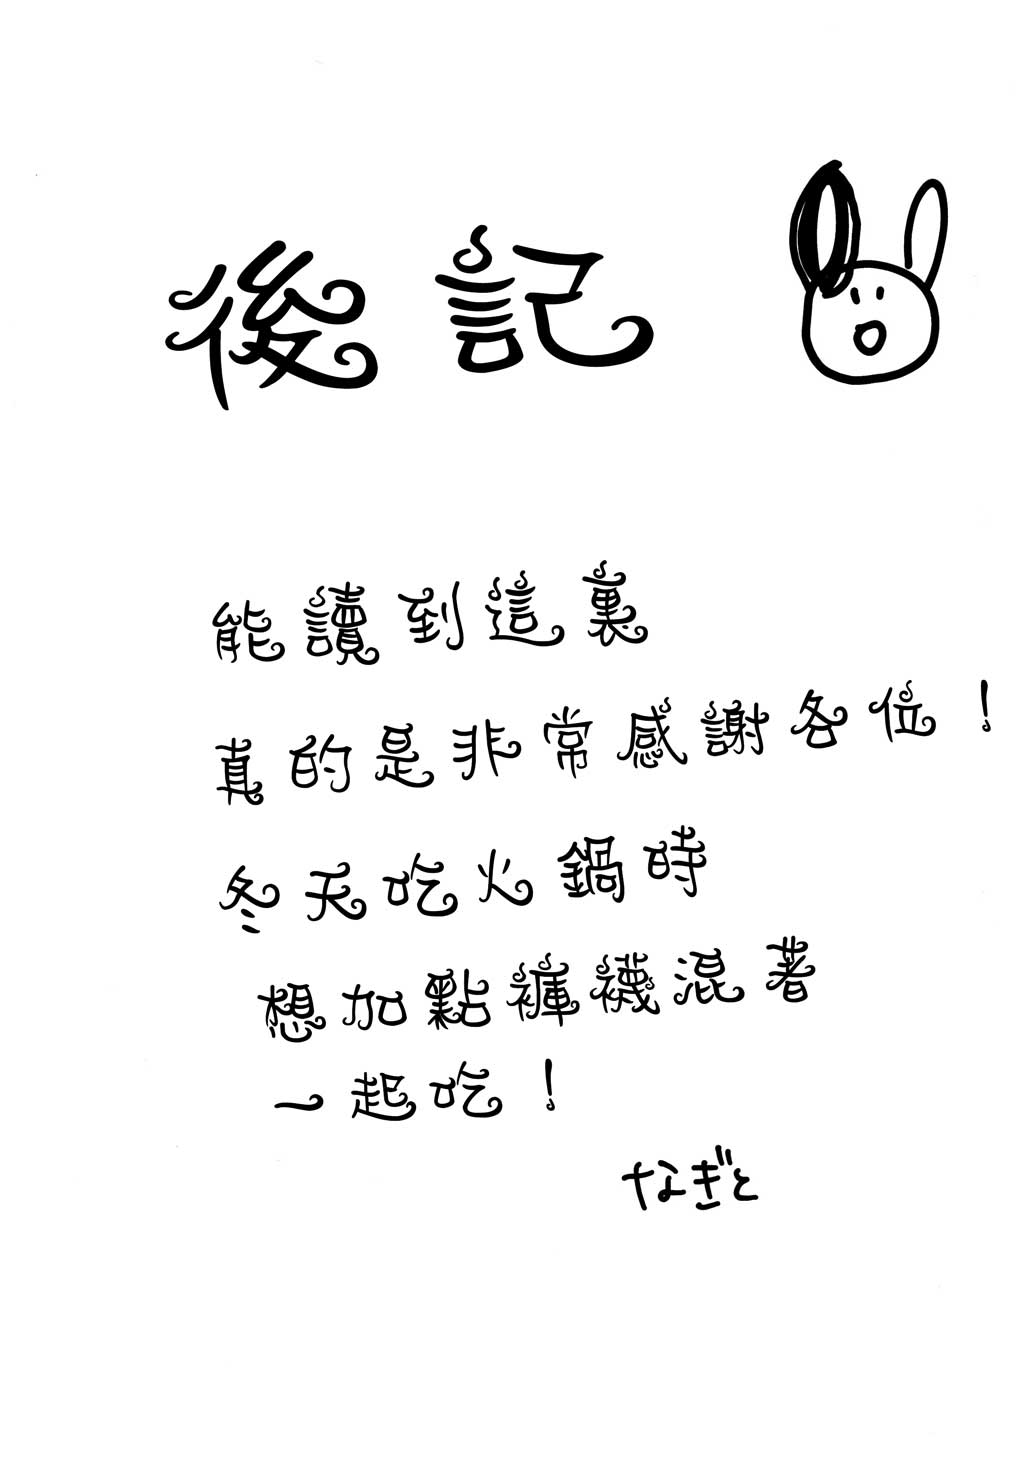 後記
能讀到這裏
真的是非常感謝各位！
冬天吃火鍋時
想加點褲襪混著
一起吃！
なぎと